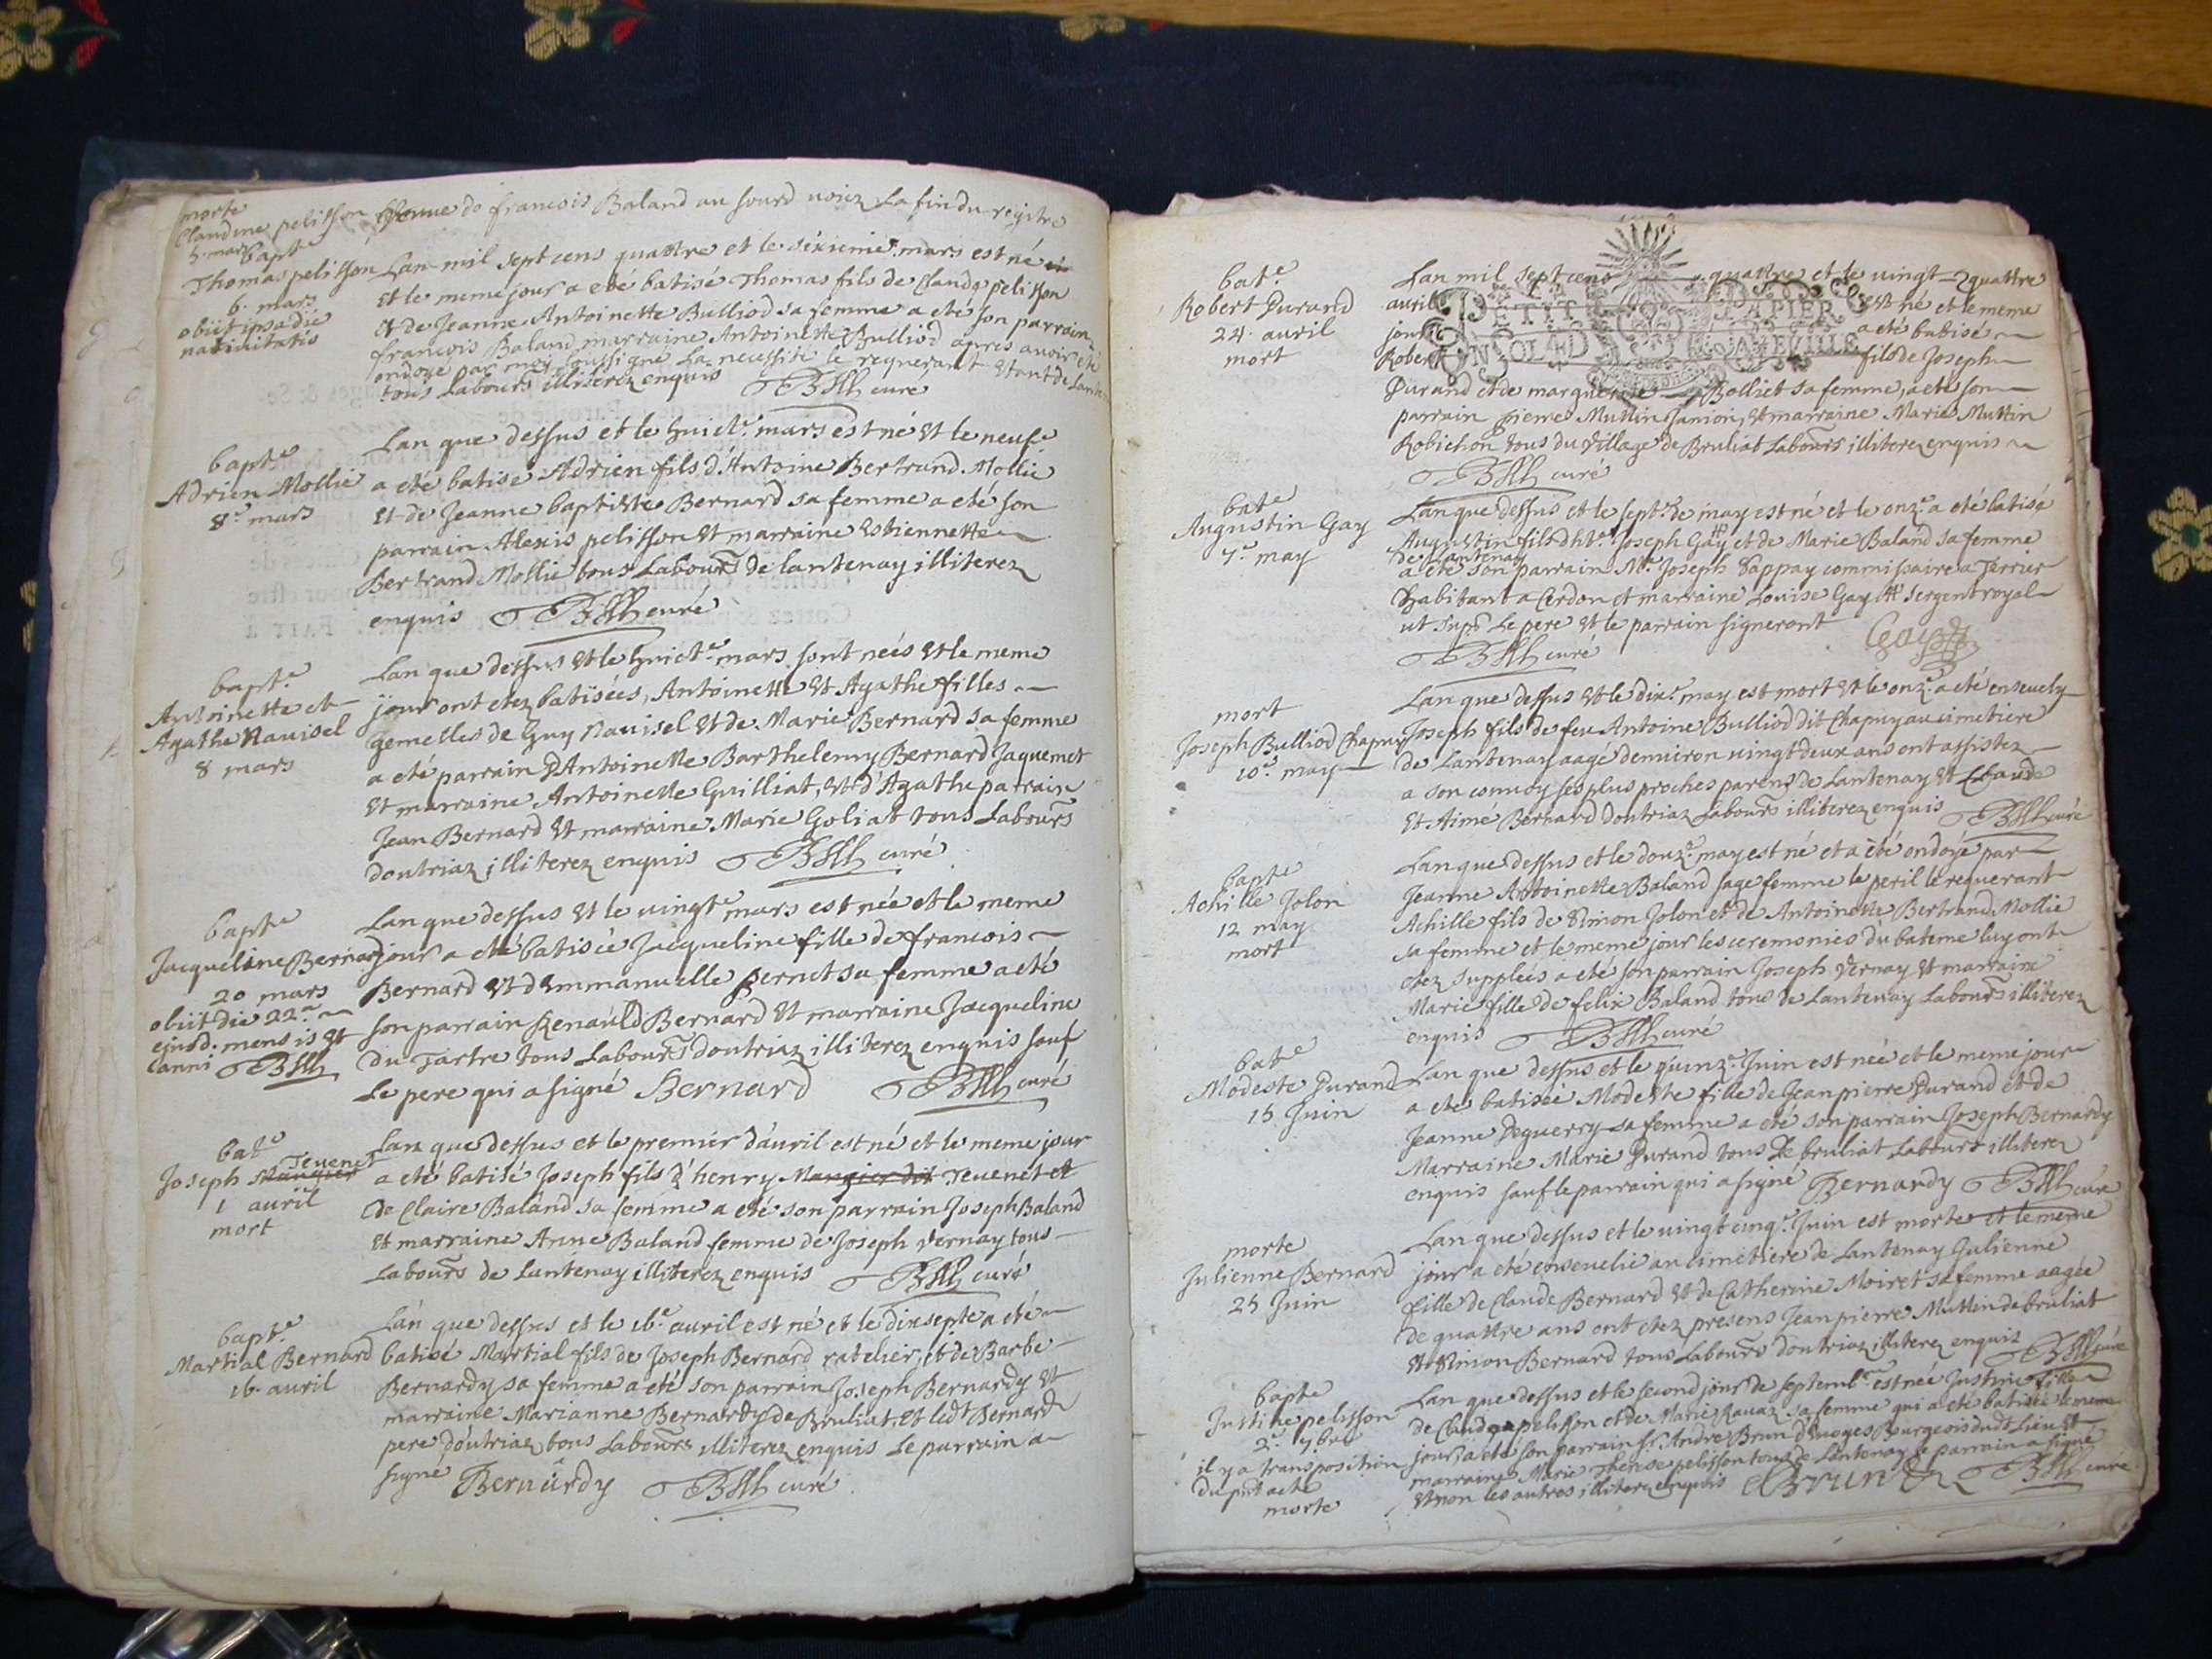 morte
Claudine pelisson femme de francois Baland au sourd voiez La fin du registre
5. mars
bapt.e
Thomas pelisson
6. mars
obiit ipsa die
nativitatis
Lan mil sept cens quattre et le sixieme mars est né
et le meme jour a eté batisé Thomas fils de Claude pelisson
et de Jeanne Antoinette Bulliod sa femme a eté son parrain
francois Baland marraine Antoinette Bulliod apres avoir eté
ondoyé par moy soussigné La necessité le requerant étant de Lantenay
tous Labours illiterez enquis curé
bapt.e
Adrien Mollié
8.e mars
Lan que dessus et le huict.e mars est né et le neuf.e
a eté batisé Adrien fils d'Antoine Bertrand Mollié
et de Jeanne baptiste Bernard sa femme a eté son
parrain Alexis pelisson et marraine Estiennette
Bertrand Mollié tous Labours de lantenay illiterez
enquis curé
bapt.e
Antoinette et
Agathe Ravisel
8 mars
Lan que dessus et le huict.e mars sont neés et le meme
jour ont etez batisées, Antoinette et Agathe filles
gemelles de Guy Ravisel et de Marie Bernard sa femme
a eté parrain d'Antoinette Barthelemy Bernard Jaquemet
et marraine Antoinette Guilliat, et d'Agathe parrain
Jean Bernard et marraine Marie Goliat tous Labours
doutriaz illiterez enquis curé
bapt.e
Jacqueline Bernard
20 mars
obiit die 22.a
ejusd. mensis et
anni
Lan que dessus et le vingt.e mars est née et le meme
jour a eté batisée Jacqueline fille de francois
Bernard et d'Emmanuelle pernet sa femme a eté
son parrain Renauld Bernard et marraine Jacqueline
du Tartre tous Labours doutriaz illiterez enquis sauf
Le pere qui a signé Bernard curé
bat.e
Joseph Tevenet
1 avril
mort
Lan que dessus et le premier d'avril est né et le meme jour
a eté batisé Joseph fils d'henry Maugier dit Tevenet et
de Claire Baland sa femme a eté son parrain Joseph Baland
et marraine Anne Baland femme de Joseph vernay tous
Labours de Lantenay illiterez enquis curé
bapt.e
Martial Bernard
16. avril
Lan que dessus et le 16.e avril est né et le dixsept.e a eté
batisé Martial fils de Joseph Bernard ratelier, et de Barbe
Bernardy sa femme a eté son parrain Joseph Bernardy et
marraine Marianne Bernardy de Bruliat, et led.t Bernard
pere doutriaz tous Labours illiterez enquis Le parrain a
signé Bernardy curé
bat.e
Robert Durand
24. avril
mort
Lan mil sept cens quattre et le vingt quattre
avril est né et le meme
jour a eté batisé
Robert fils de Joseph
PETIT PAPIER
Durand et de marguerite Bolliet sa femme, a eté son
parrain pierre Muttin Janion, et marraine Marie Muttin
Robichon tous du village de Bruliat Labours illiterez enquis
curé
bat.e
Augustin Gay
7.e may
Lan que dessus et le sept.e de may est né et le onz.e a eté batisé
Augustin fils d'h.te Joseph Gay et de Marie Baland sa femme
de Lantenay
a eté son parrain M.e Joseph Sappay commissaire a Terrier
habitant a Cerdon et marraine Louise Gay sergent royal
ut sup.a Le pere et le parrain signeront Gay
curé
mort
Joseph Bulliod Chapuy
10.e may
Lan que dessus et le dix.e may est mort et le onz.e a eté ensevely
Joseph fils de feu Antoine Bulliod dit Chapuy au cimetiere
de Lantenay aagé denviron vingt deux ans ont assistez
a son convoy ses plus proches parens de Lantenay et Claude
et Aimé Bernard doutriaz Labours illiterez enquis curé
bapt.e
Achille Jolon
12 may
mort
Lan que dessus et le douz.e may est né et a eté ondoyé par
Jeanne Antoinette Baland sage femme le peril le requerant
Achille fils de Simon Jolon et de Antoinette Bertrand Mollié
sa femme et le meme jour les ceremonies du bateme luy ont
etez suppleés a eté son parrain Joseph vernay et marraine
Marie fille de felix Baland tous de Lantenay Labours illiterez
enquis curé
bat.e
Modeste Durand
15 Juin
Lan que dessus et le quinz.e Juin est née et le meme jour
a eté batisée Modeste fille de Jean pierre Durand et de
Jeanne Deguerry sa femme a eté son parrain Joseph Bernardy
Marraine Marie Durand tous de bruliat Labours illiterez
enquis sauf le parrain qui a signé Bernardy curé
morte
Julienne Bernard
25 Juin
Lan que dessus et le vingt cinq.e Juin est morte et le meme
jour a eté ensevelie au cimetiere de Lantenay Julienne
fille de Claude Bernard et de Catherine Moiret sa femme aagée
de quattre ans ont etez presens Jean pierre Muttin de bruliat
et Simon Bernard tous Labours doutriaz illiterez enquis curé
bapt.e
Justine pelisson
2.e 7bre
il y a transposition
du pnt acte
morte
Lan que dessus et le second jour de septemb.e est née Justine fille
de Claude pelisson et de Marie Ravaz sa femme qui a eté batisée le meme
jour, a eté son parrain s.r André Brun d'Evoges Bourgeois dud.t Lieu et
marraine Marie Therese pelisson tous de Lantenay le parrain a signé
et non les autres illiterez enquis Brun curé